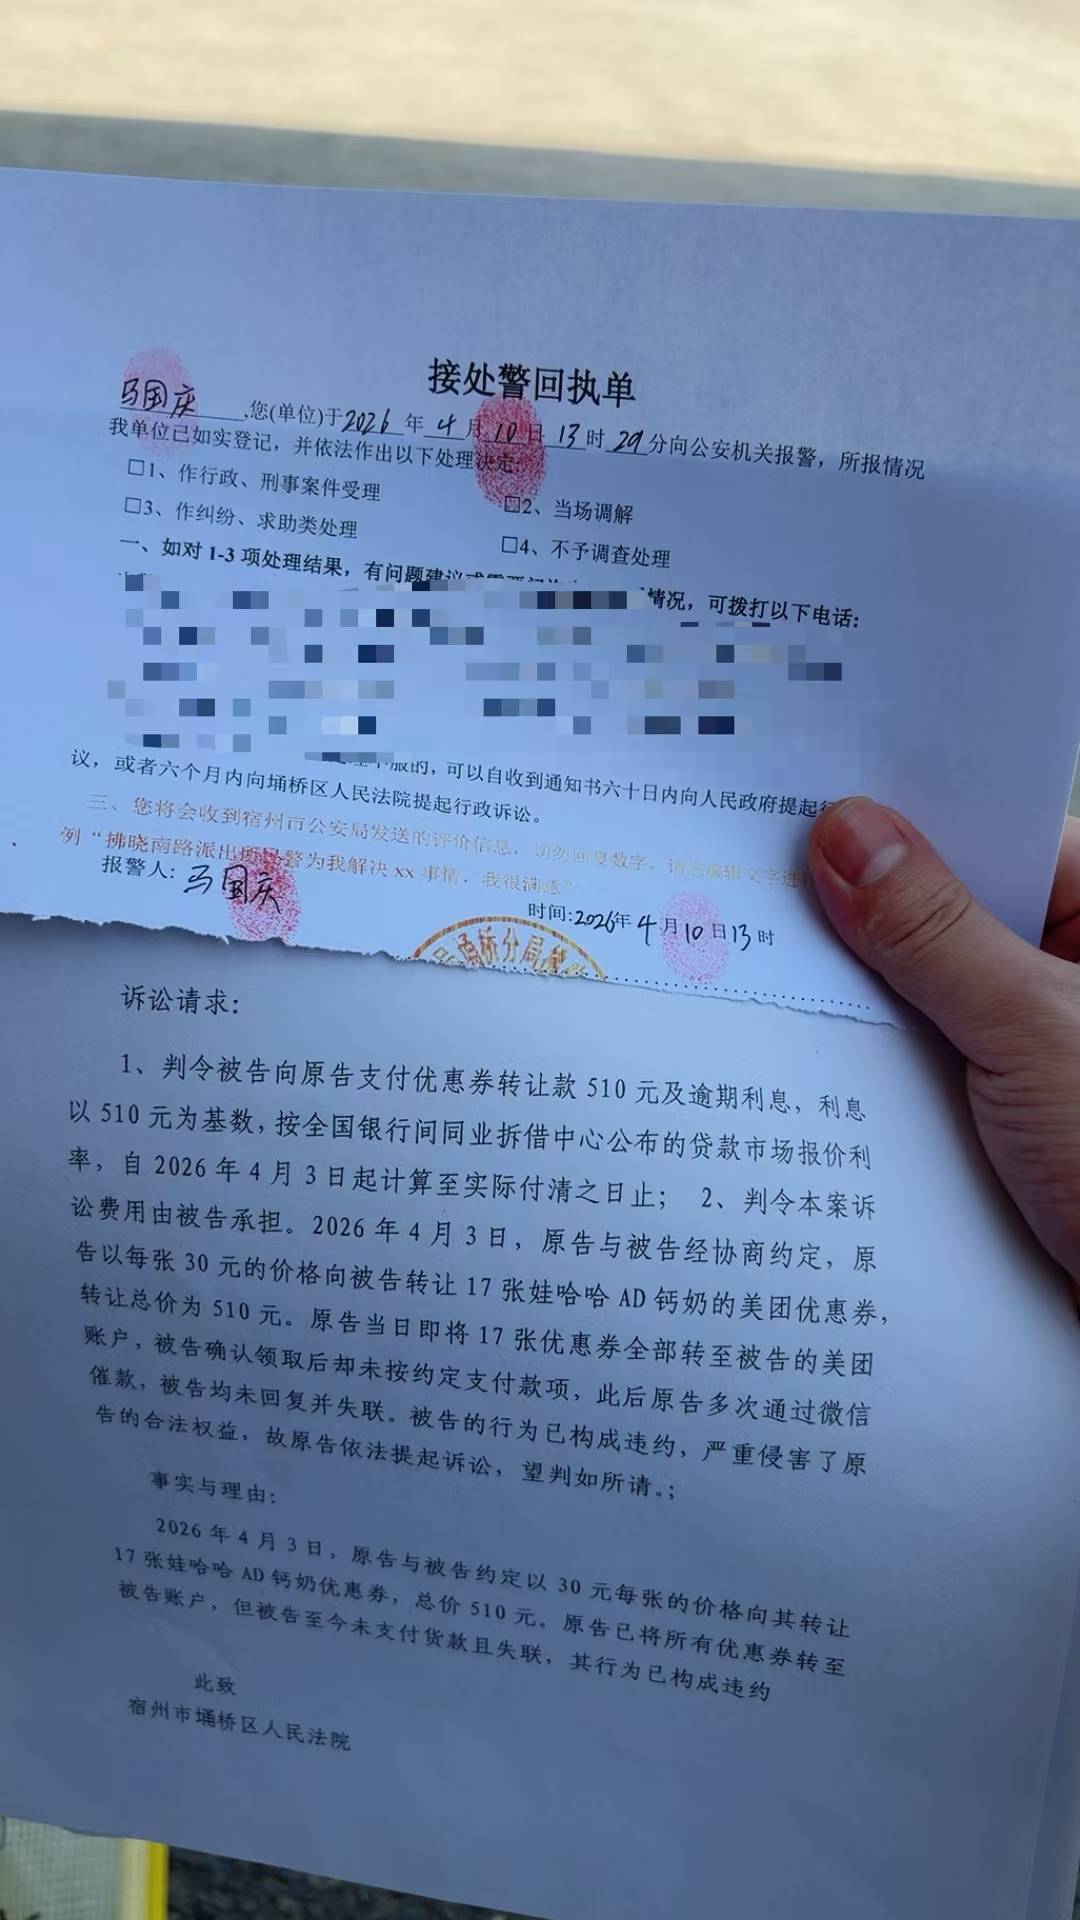 接处警回执单
马国庆,您(单位)于2026年4月10日13时29分向公安机关报警，所报情况
我单位已如实登记，并依法作出以下处理决定:
□1、作行政、刑事案件受理
□2、当场调解
□3、作纠纷、求助类处理
□4、不予调查处理
一、如对1-3项处理结果，有问题建议或 情况，可拨打以下电话:
不服的，可以自收到通知书六十日内向人民政府提起
议，或者六个月内向埇桥区人民法院提起行政诉讼。
三、您将会收到宿州市公安局发送的评价信息，切勿回复数字，请您编辑文字进行
例“拂晓南路派出所民警为我解决xx事情，我很满意”
报警人:马国庆
时间:2026年4月10日13时
埇桥分局
诉讼请求:
1、判令被告向原告支付优惠券转让款510元及逾期利息，利息
以510元为基数，按全国银行间同业拆借中心公布的贷款市场报价利
率，自2026年4月3日起计算至实际付清之日止； 2、判令本案诉
讼费用由被告承担。2026年4月3日，原告与被告经协商约定，原
告以每张30元的价格向被告转让17张娃哈哈AD钙奶的美团优惠券，
转让总价为510元。原告当日即将17张优惠券全部转至被告的美团
账户，被告确认领取后却未按约定支付款项，此后原告多次通过微信
催款，被告均未回复并失联。被告的行为已构成违约，严重侵害了原
告的合法权益，故原告依法提起诉讼，望判如所请。；
事实与理由:
2026年4月3日，原告与被告约定以30元每张的价格向其转让
17张娃哈哈AD钙奶优惠券，总价510元。原告已将所有优惠券转至
被告账户，但被告至今未支付货款且失联，其行为已构成违约
此致
宿州市埇桥区人民法院